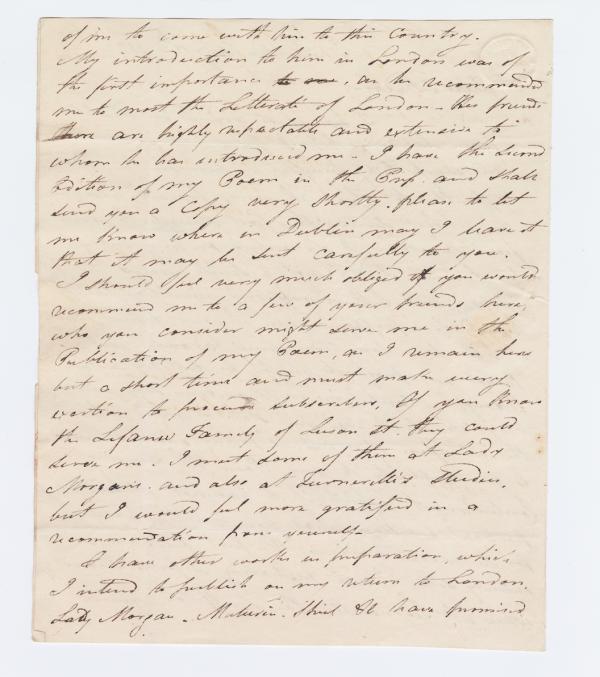 of me to come with him to this Country.
My introduction to him in London was of
the first importance to me, as he recommended
me to most the Litterati of London - His friends
there are highly respectable and extensive to
whom he has introduced me - I have the second
Edition of my Poem in the Press. and shall
send you a Copy very shortly. please to let
me know where in Dublin may I leave it
that it may be sent carefully to you.
I should feel very much obliged if you would
recommend me to a few of your friends here,
who you consider might serve me in the
Publication of my Poem, as I remain here
but a short time and must make every
exertion to procure subscribers, If you know
the Lefanu Family of Leeson St. they could
serve me. I meet some of them at Lady
Morgans. and also at Turnerelli's Studio,
but I would feel more gratified in a
recommendation from yourself-
I have other works in preparation, which
I intend to publish on my return to London.
Lady Morgan - Maturin. Shiel &c have promised